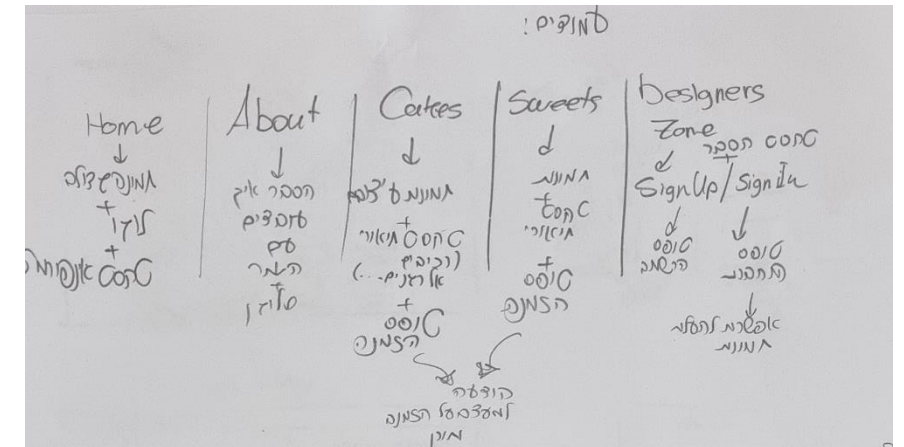 עמודים:
Home
תמונה גדולה
+
לוגו
+
טקסט
About
הסבר איך
עובדים
עם
האתר
+
סלוגן
Cakes
תמונת
+
טקסט תיאורי
(רכיבים
אלרגנים...)
+
טופס
הזמנה
Sweets
תמונות
+
טקסט
תיאורי
+
טופס
הזמנה
הודעה
למעצב על הזמנה
Designers
Zone
טקסט הסבר
+
SignUp/SignIn
טופס
הרשמה
טופס
התחברות
אפשרות להעלות
תמונות